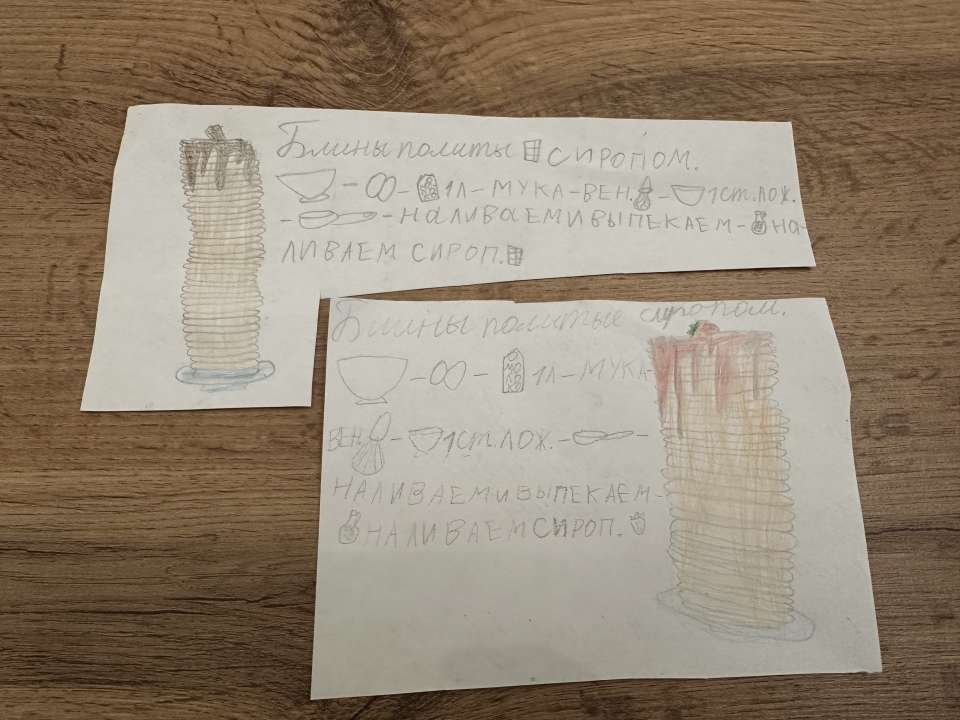 Блины политы сиропом.
1л - МУКА - ВЕН. - 1СТ.ЛОЖ.
- НАЛИВАЕМ И ВЫПЕКАЕМ - НА-
ЛИВАЕМ СИРОП.
Блины политые сиропом.
1л - МУКА -
ВЕН. - 1СТ.ЛОЖ. -
НАЛИВАЕМ И ВЫПЕКАЕМ -
НАЛИВАЕМ СИРОП.